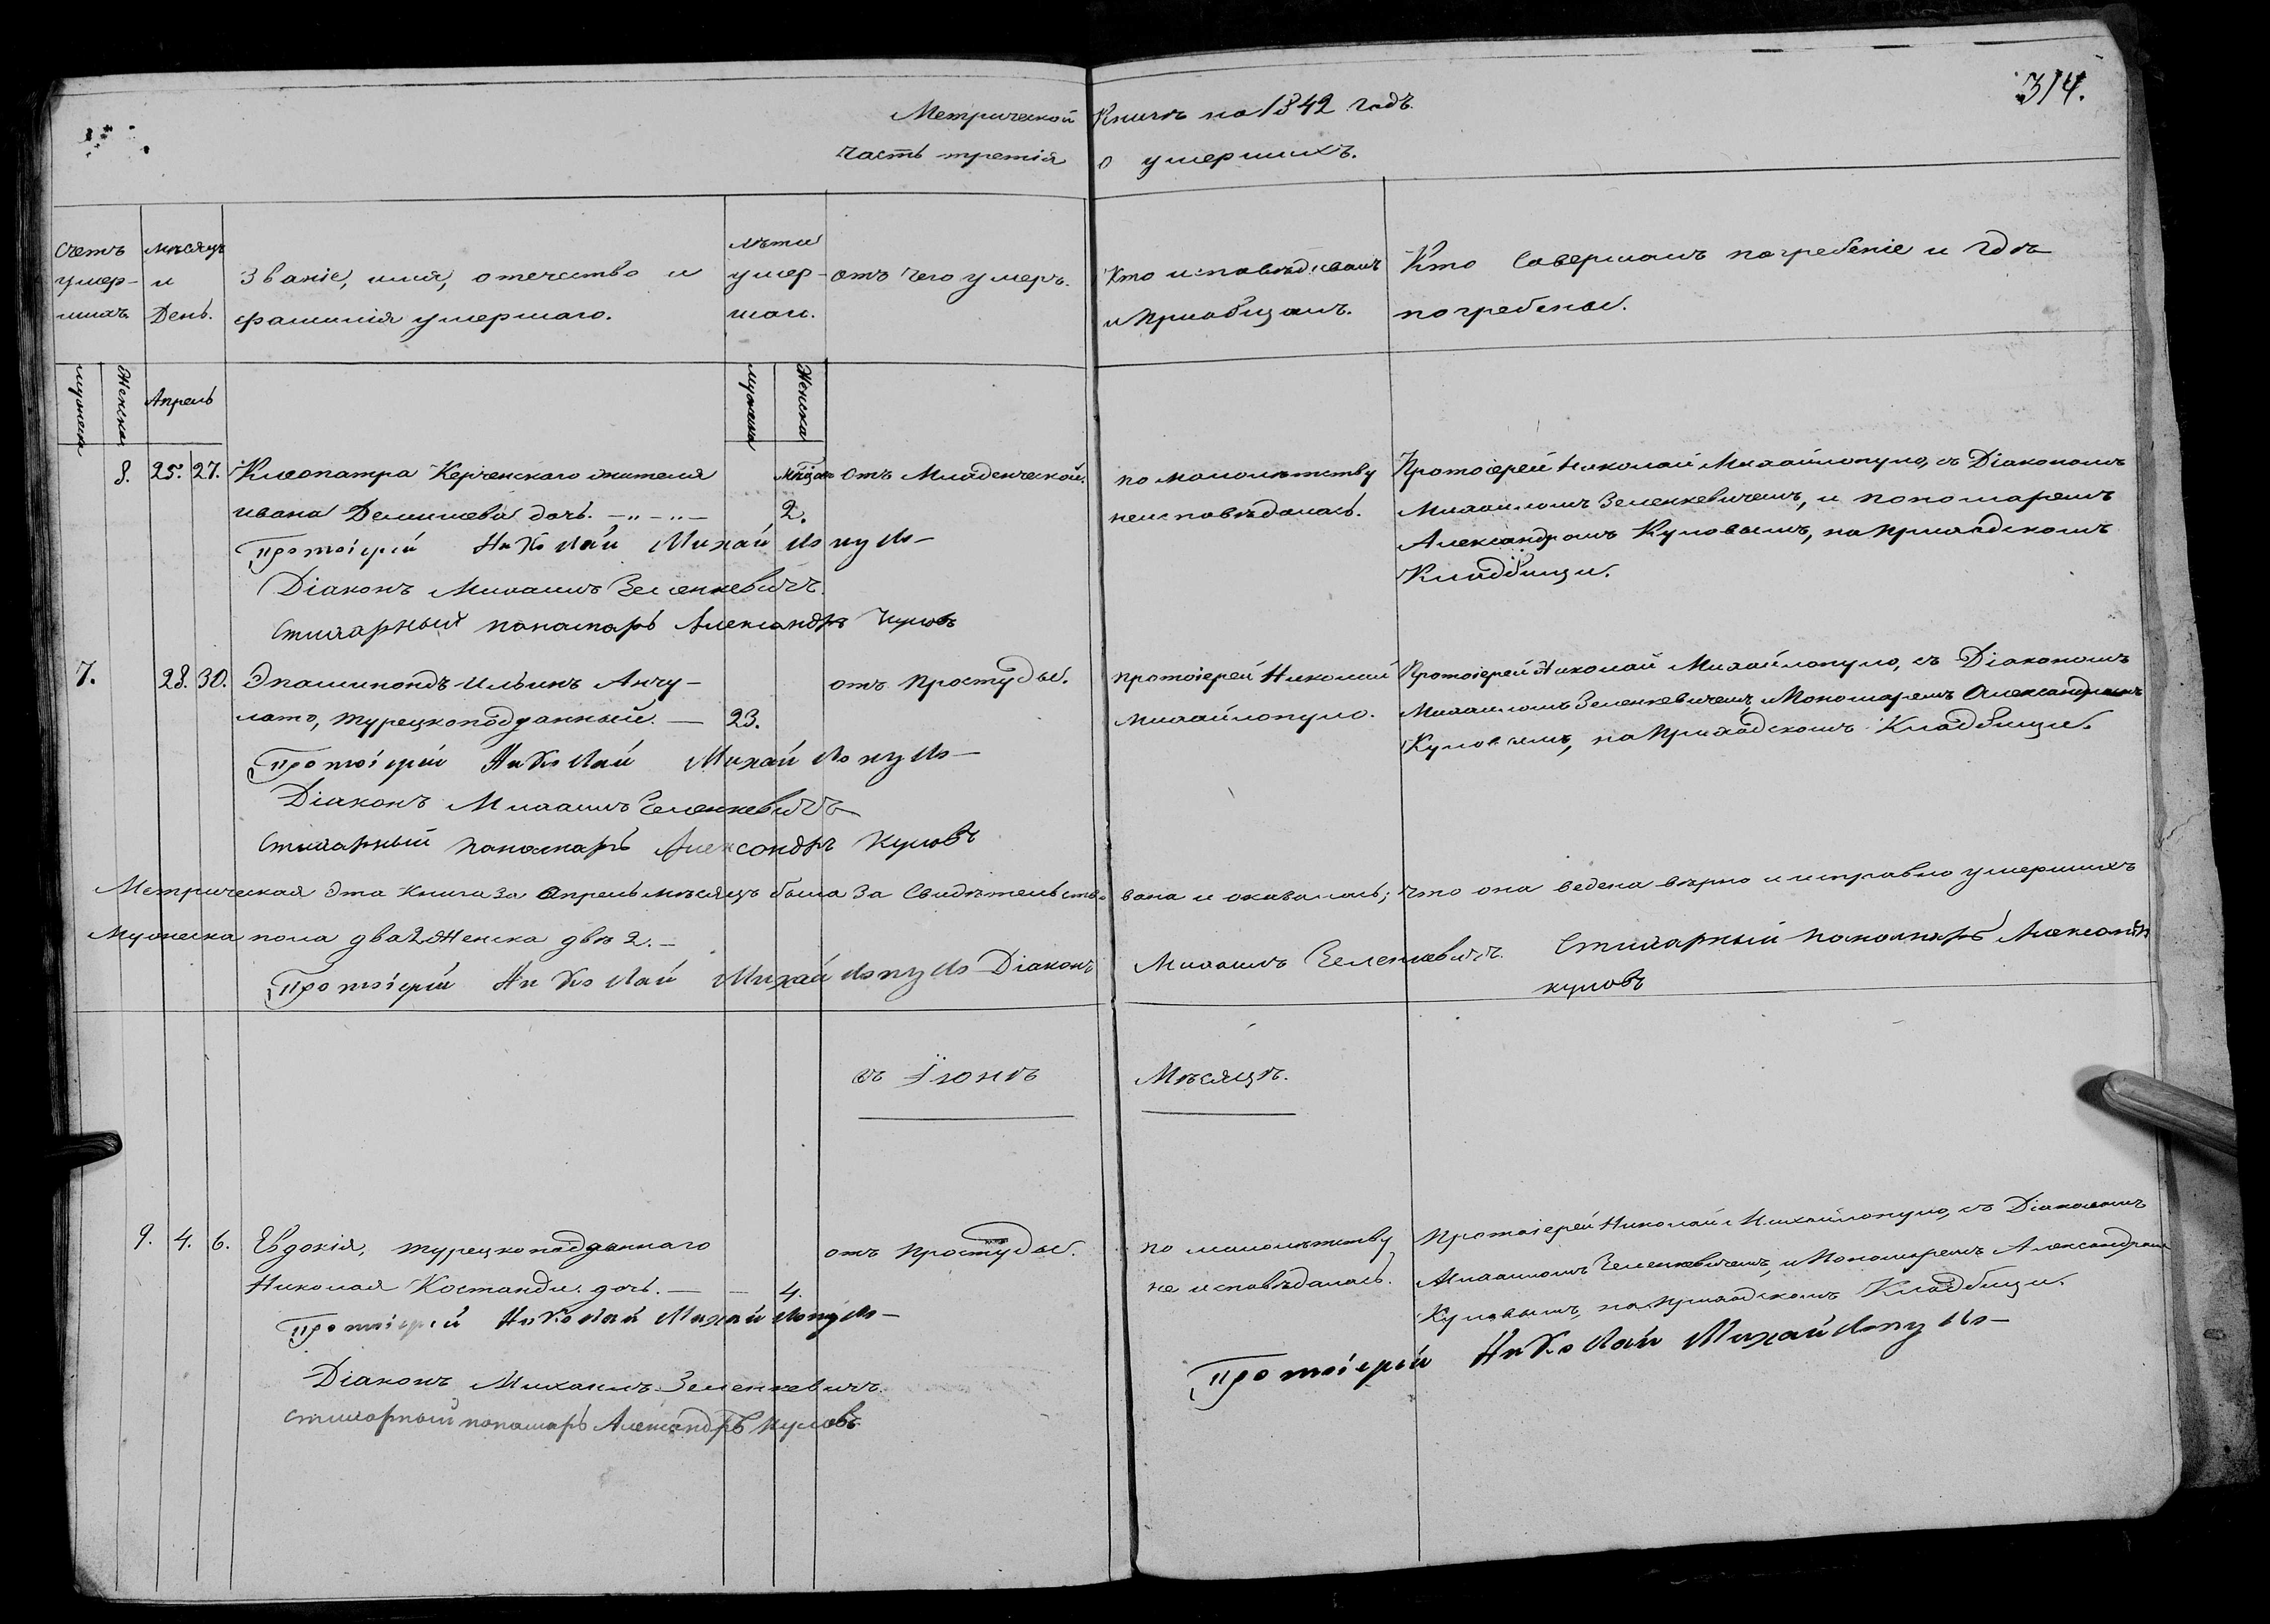 314.
Метрической Книги на 1842 годъ.
часть третія о умершихъ.
Счетъ умер- шихъ
мѣсяцъ и День.
Званіе, имя, отечество и
фамилія умершаго.
лѣти умер- шаи.
отъ чего умеръ.
Кто исповѣдывалъ
и приобщалъ.
Кто Совершалъ погребеніе и гдѣ
погребены.
мужеска
Женска
Апрель
мужеска
Женска
8. 25. 27. Клеопатра Керченскаго жителя
мѣсяц. отъ Младенческой.
ивана дочь. —„—„— 2.
по малолѣтству
неисповѣдалась.
Протоіерей Николай Михайлопуло, съ Діакономъ
Михаиломъ Зеленкевичемъ, и пономаремъ
Александромъ Куловымъ, на приходскомъ
Кладбищи.
Протоіерій Николай Михайлопуло
Діаконъ Михаилъ Зеленкевичъ.
Стихарный понамарь Александръ Куловъ
7. 28. 30. Эпаминондъ Ильинъ Анчу-
отъ простуды.
лато, турецкоподданный. — 23.
протоіерей Николай
михайлопуло.
Протоіерей Николай Михайлопуло, съ Діакономъ
Михаиломъ Зеленкевичемъ, и Пономаремъ Александромъ
Куловымъ, на приходскомъ Кладбищи.
Протоіерій Николай Михайлопуло
Діаконъ Михаилъ Зеленкевичъ
Стихарный понамарь Александръ Куловъ
Метрическая Эта книга за Апрель мѣсяцъ была За Свидѣтельство- вана и оказалась; что она ведена вѣрно и исправно умершихъ
Мужеска пола два 2 Женска двѣ 2. —
Протоіерій Николай Михайлопуло Діаконъ Михаилъ Зеленкевичъ. Стихарный понамарь Александръ
куловъ
въ Іюнѣ Мѣсяцѣ.
9. 4. 6. Евдокія, турецкоподданнаго
отъ простуды.
Николая Костанди дочь. — — 4.
по малолѣтству
не исповѣдалась.
Протоіерей Николай Михайлопуло, съ Діакономъ
Михаиломъ Зеленкевичемъ, и Пономаремъ Александромъ
Куловымъ, на приходскомъ Кладбищи.
Протоіерій Николай Михайлопуло
Протоіерій Николай Михайлопуло
Діаконъ Михаилъ Зеленкевичъ.
стихарный понамарь Александръ куловъ